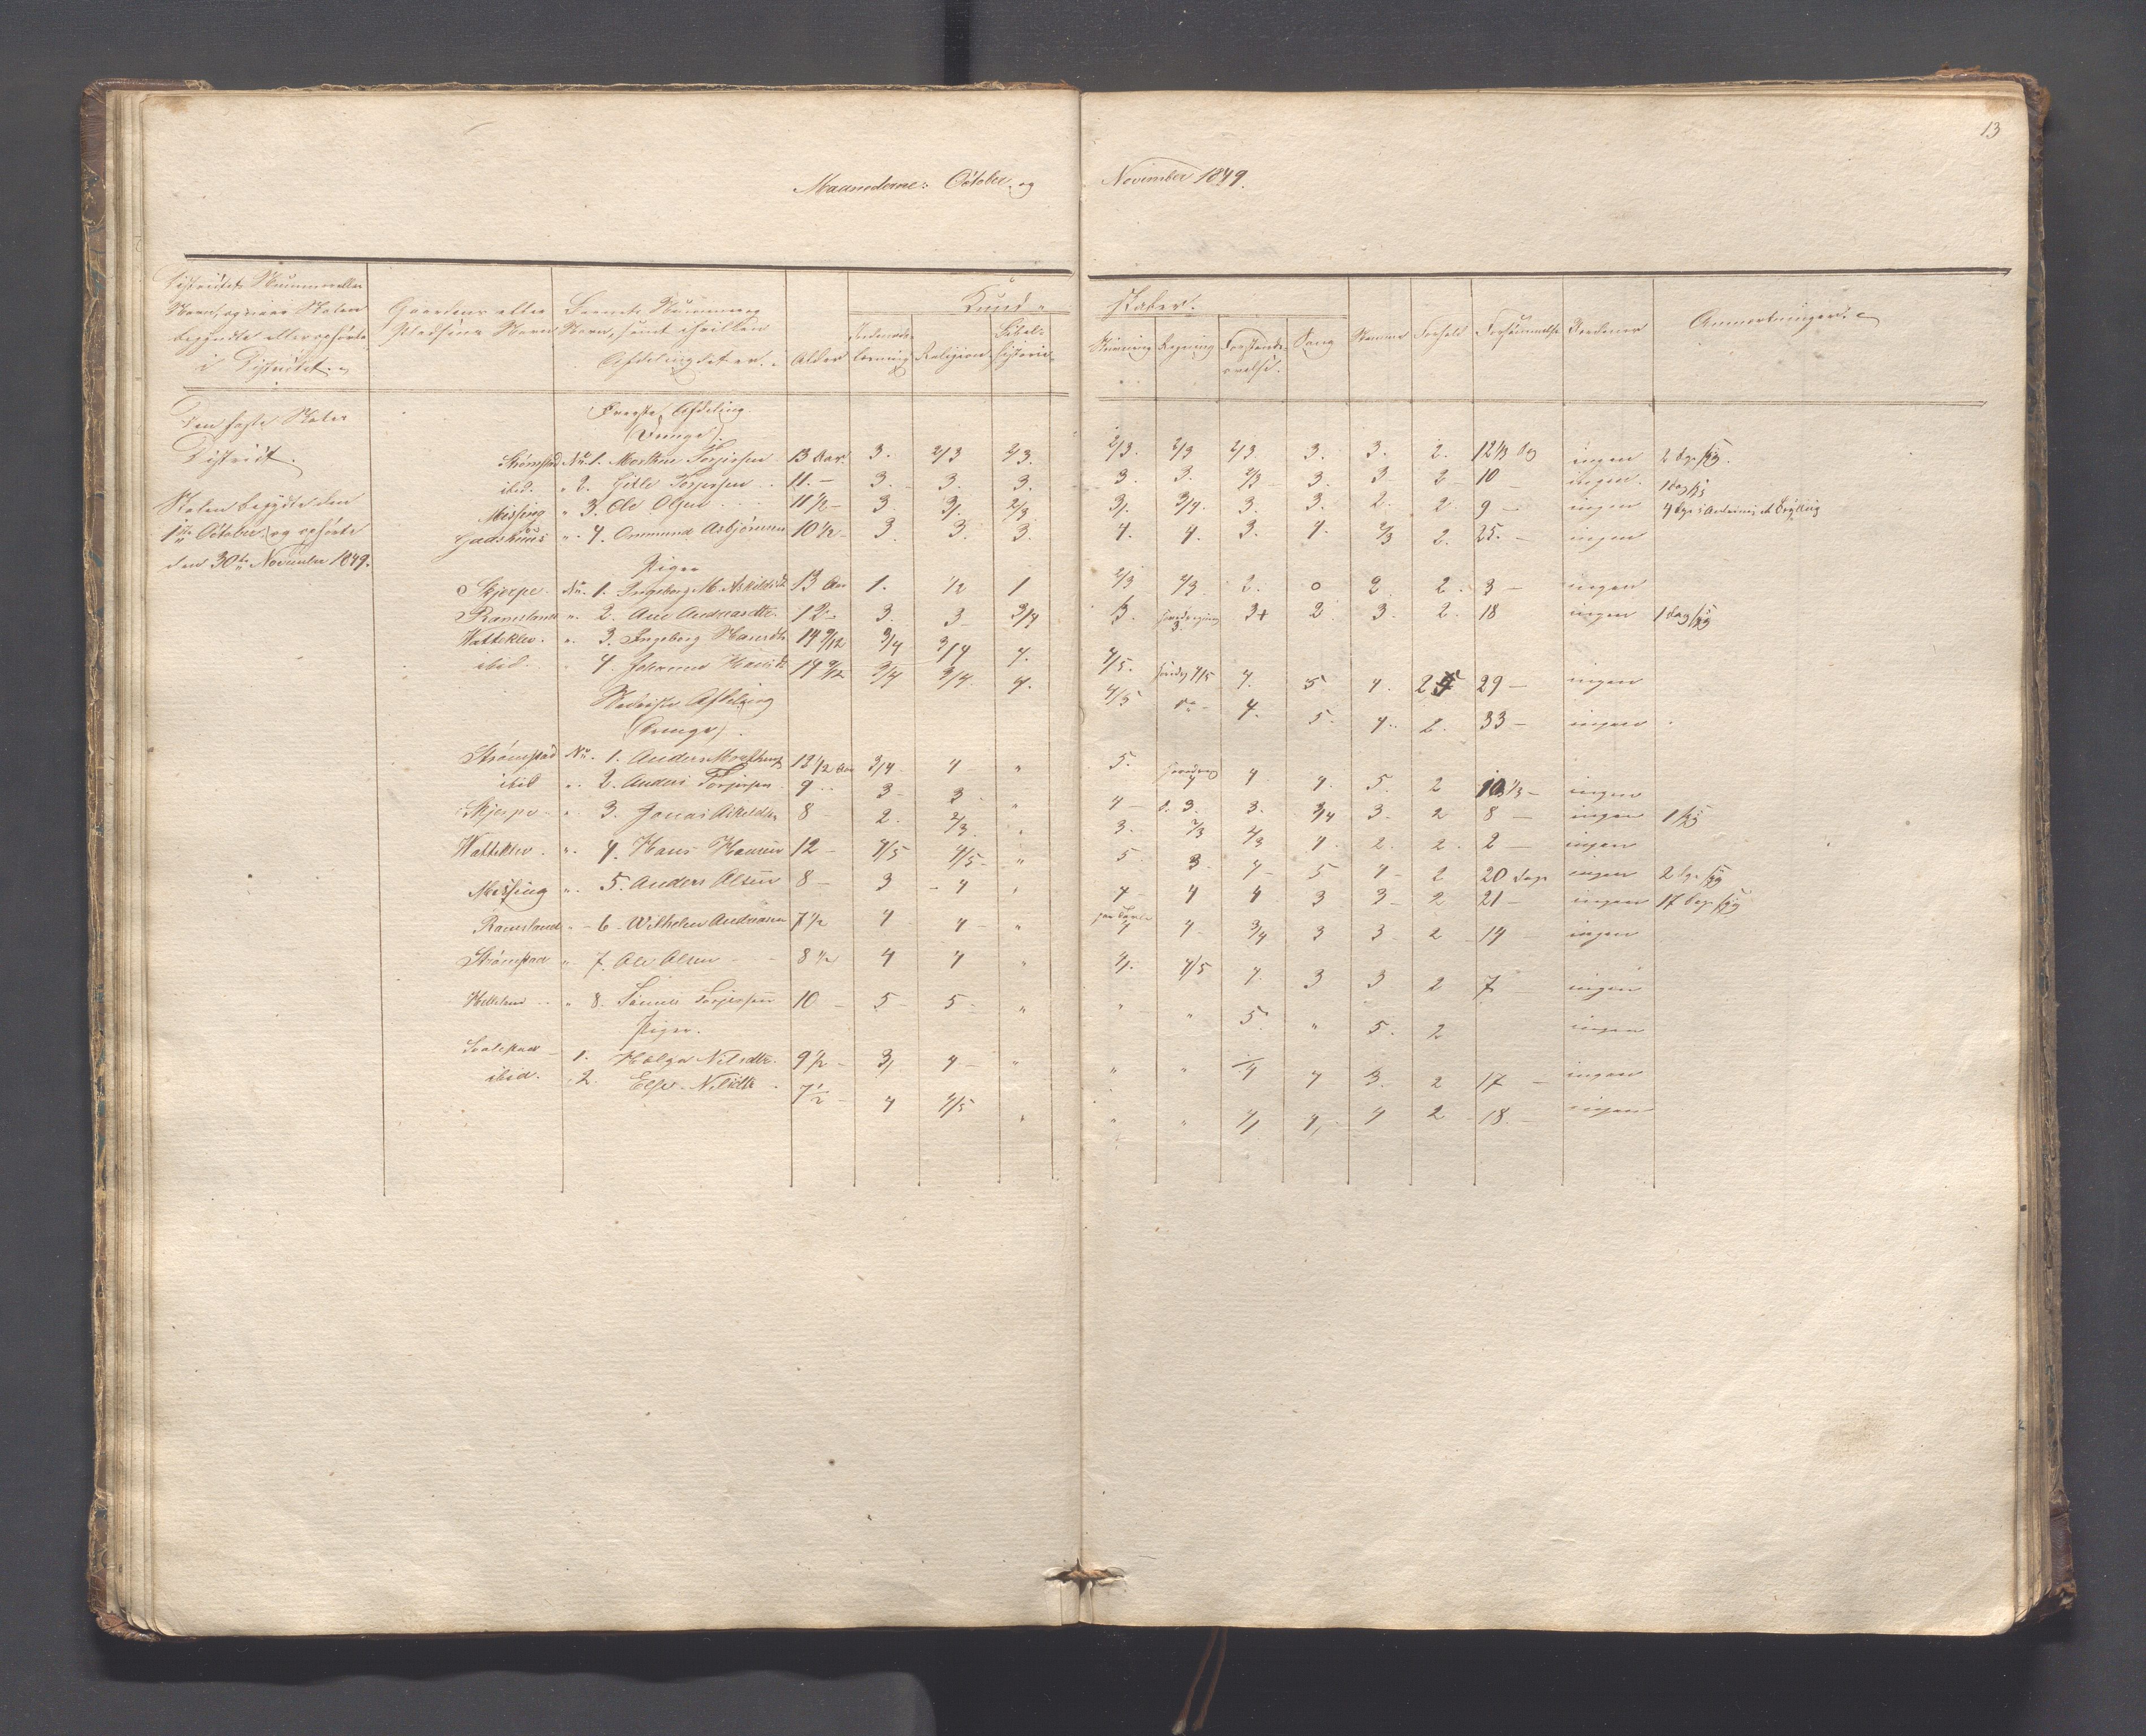 13
Maanederne: October og November 1849.
Districtets Nummer eller
Navn, og naar Skolen
begyndte eller ophørte
i Districtet.
Gaardens eller
Pladsens Navn
Barnets Nummer og
Navn, samt i hvilken
Afdeling det er.
Alder
Kund-
skaber.
Indenads-
læsning
Religion
Bibel-
historie
Skrivning
Regning
Forstands-
øvelse.
Sang
Nemme
Forhold
Forsømmelse
Anmærkninger.
Den faste Skoles
District.
Skolen begyndte den
1ste October, og ophørte
den 30te November 1849.
Øverste Afdeling
(Drenge)
Strømstad No. 1. Morthen Torjersen 13 Aar. 3. 2/3 2/3. 2/3. 2/3 2/3 3. 3. 2. 12 1/3 Dg ingen 2 Dge syg.
ibid. " 2. Torjersen 11. – 3. 3. 3. 3. 3. 2/3 3. 3 2 10 – ingen. 1 dag syg
Missing " 3. Ole Olsen 11 1/2 – 3. 3. 2/3 3. 3/4. 3. 3. 2. 2 9 – ingen
Gadshuus " 4. Ommund Asbjørnsen 10 1/2 – 3. 3. 3. 4. 4. 3. 4. 2/3 2. 25. – ingen
Piger
Skjerpe. No. 1. Ingeborg M. 13 Aar 1. 1/2 1 2/3 2/3 2. 0 2. 2. 3 – ingen
Ramsland " 2. Ane Andreasdtr. 12 – 3. 3 3/4 3. 3+ 2 3. 2. 18 ingen 1 dag syg
Vatteklev. " 3. Ingeborg Hansdtr 14 9/12 3/4 3/4 4. 4/5. 4/5 4. 5 4. 2 29 – ingen
ibid. " 4. Johanne Hansdtr 14 9/12 3/4 3/4. 4. 4/5 4. 5. 4. 2. 33 – ingen
Nederste Afdeling
(Drenge).
Strømstad No. 1. Anders Morthens. 12 1/2 Aar 3/4 4 " 5. 4 4 4. 5. 2 10 1/3 – ingen
ibid " 2. Anders Torjersen 9 3 3 " 4 – 3. 3. 3/4 3. 2 8 – ingen 1 syg
Skjerpe " 3. Jonas 8 – 2. 2/3. " 3. 2/3 2/3 4. 2. 2. 2 – ingen
Vatteklev. " 4. Hans Hansen 12 – 4/5 4/5 – " 5. 3. 4 – 5 4 – 2 20 Dage ingen 2 Dge syg
Missing " 5. Anders Olsen 8 – 3 4 " 4 – 4 4 3 3 – 2 21 – ingen 17 Dage syg
Ramsland " 6. Wilhelm Andreasen 7 1/2 4 4 – " 4 4 – 3/4 3 3 – 2 14 – ingen
Strømstad " 7. Ole Olsen 8 1/2 4 4 " 4. 4/5 4. 3 3 2 7 – ingen
Helleland " 8. Torjersen 10 – 5 5 – " " " 5. " 5. 2 ingen
Piger.
1. Helga Nilsdtr. 9 1/2 – 3/ 4 – " " " 4 4 3. 2 17 – ingen
ibid. 2. Else Nilsdtr 7 1/2 – 4 4/5 " " " 4/ 4 – 4 2 18 – ingen